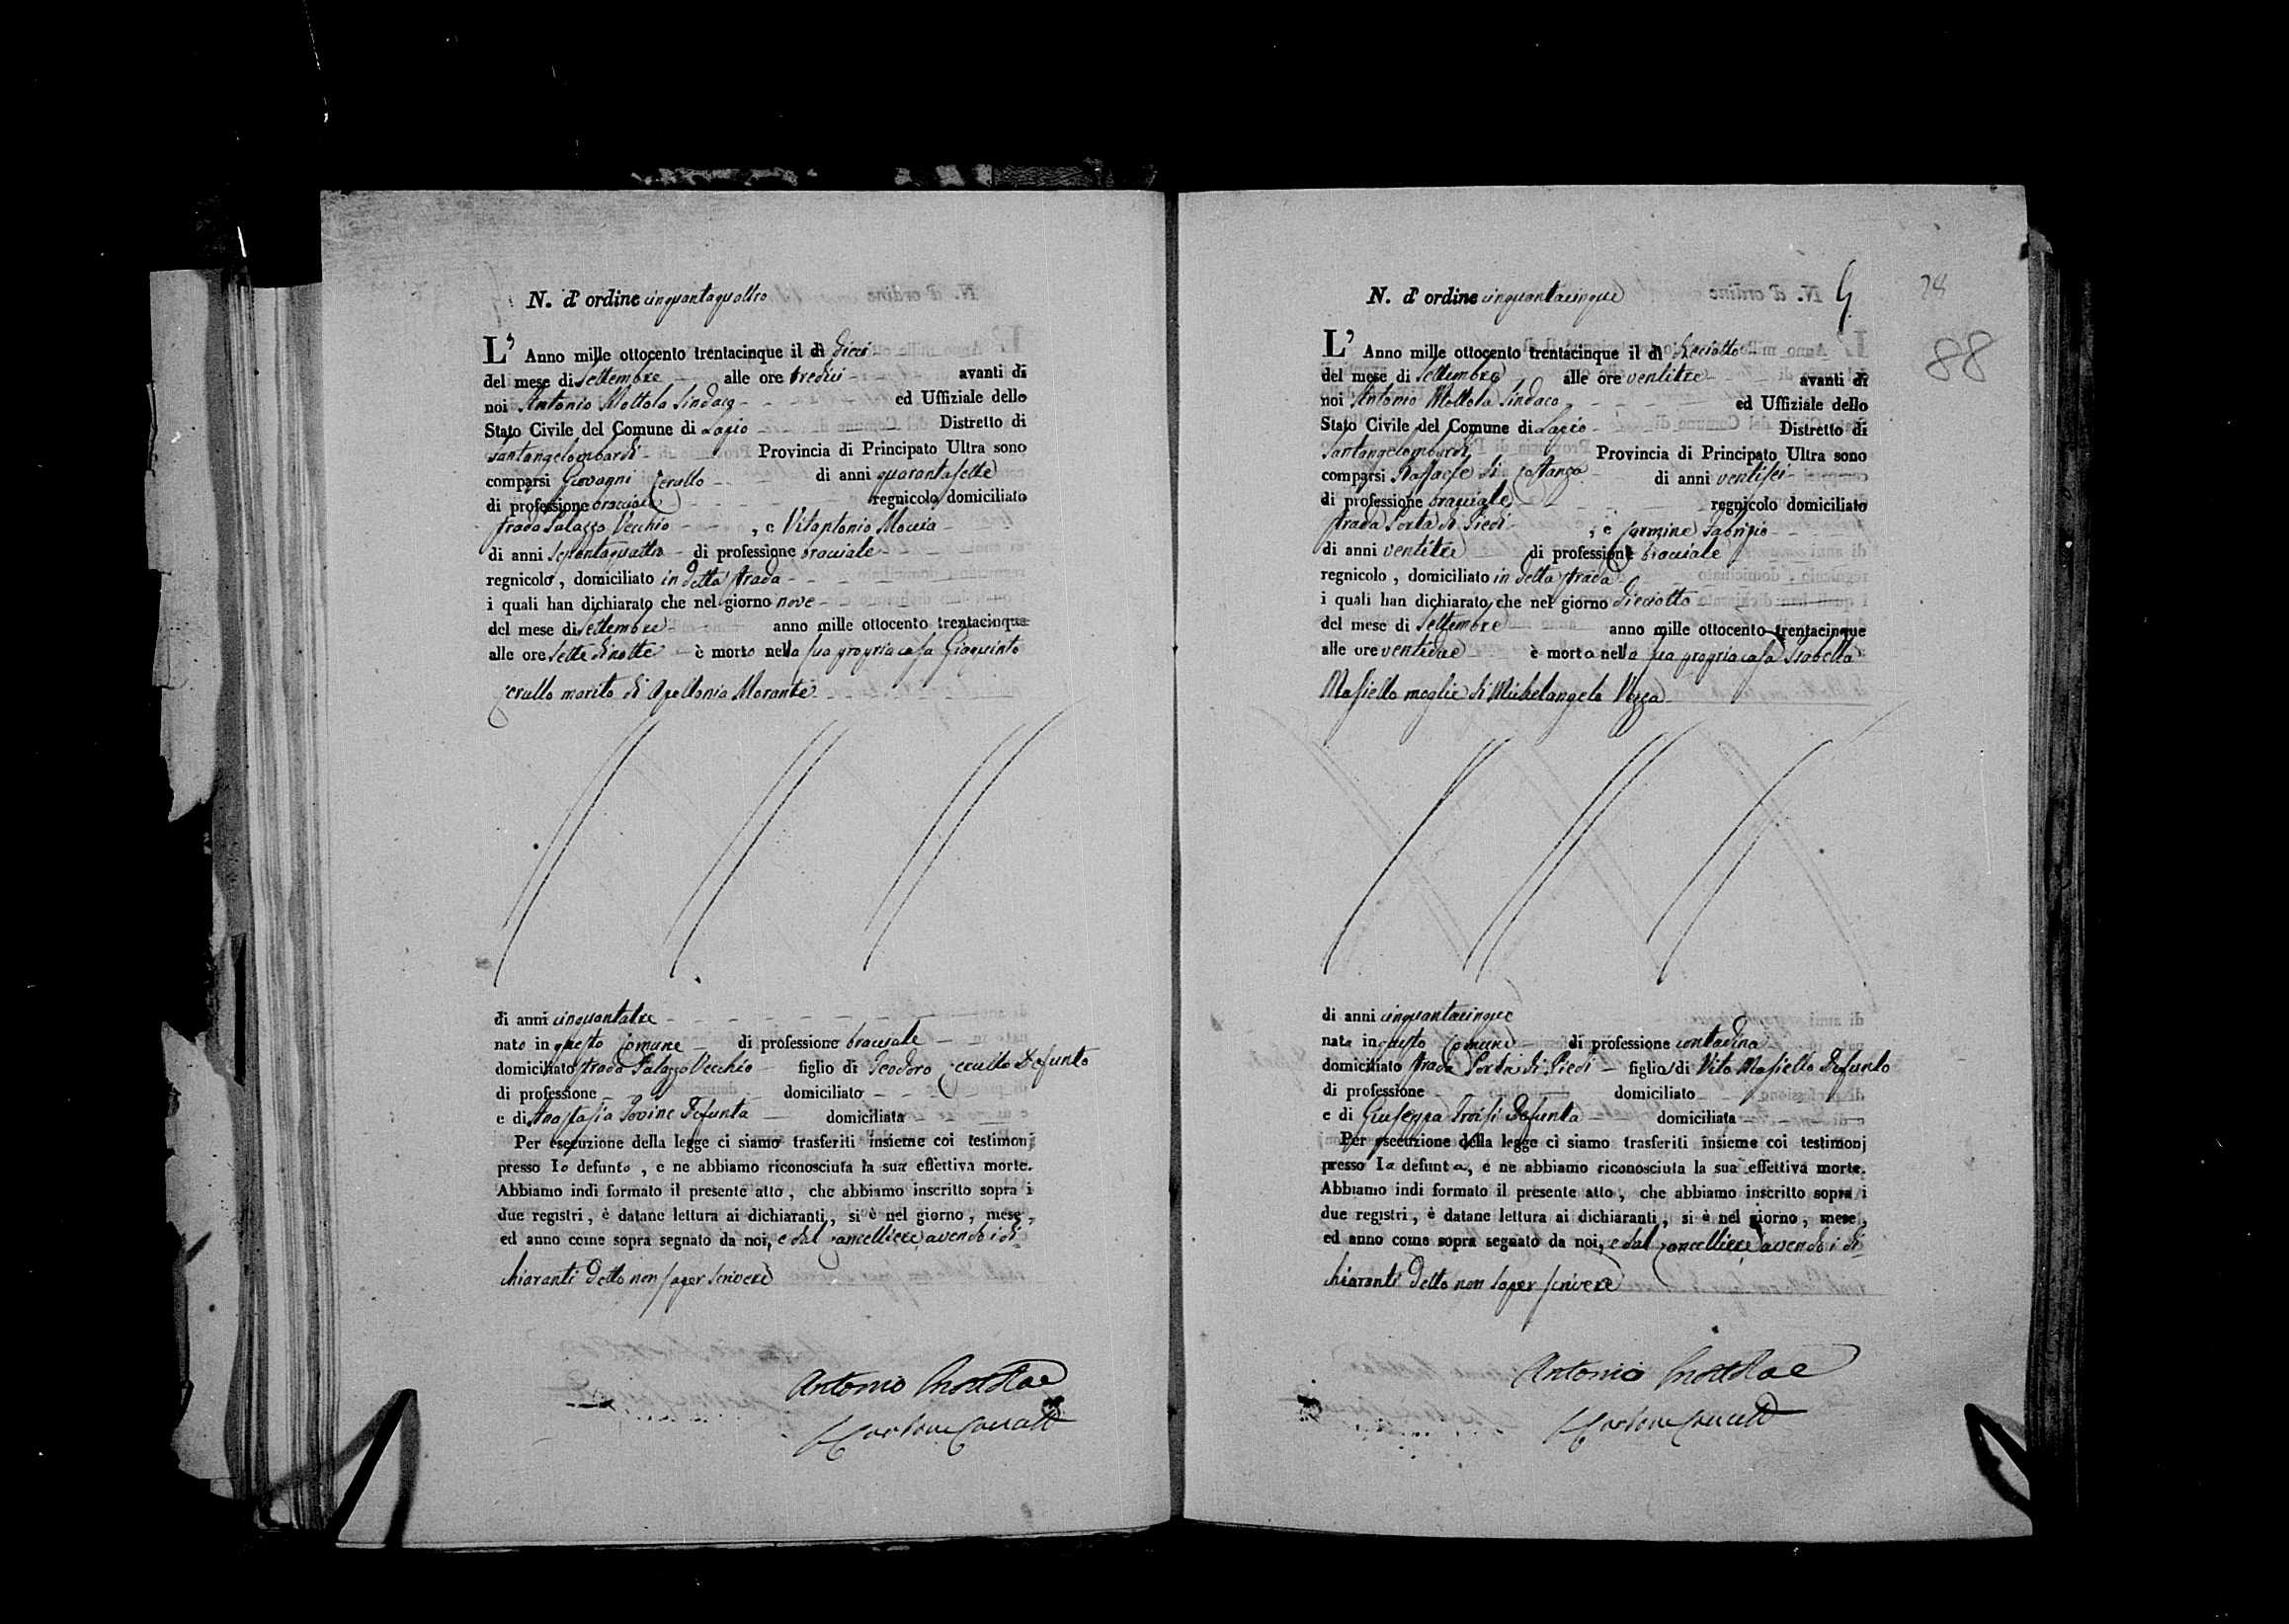 N. d' ordine cinquantaquattro
L' Anno mille ottocento trentacinque il dì dieci
del mese di Settembre alle ore tredici avanti di
noi Antonio Mottola Sindaco ed Uffiziale dello
Stato Civile del Comune di Lapio Distretto di
Santangelombardi Provincia di Principato Ultra sono
comparsi Giovanni Cerullo di anni quarantasette
di professione bracciale regnicolo domiciliato
strada Palazzo Vecchio , e Vitantonio Moccia
di anni sessantaquattro di professione bracciale
regnicolo , domiciliato in detta strada
i quali han dichiarato che nel giorno nove
del mese di Settembre anno mille ottocento trentacinque
alle ore sette di notte è morto nella sua propria casa Giaquinto
Cerullo marito di Apellonia Morante
di anni cinquantatre
nato in questo Comune di professione bracciale
domiciliato strada Palazzo Vecchio figlio di Teodoro Cerullo Defunto
di professione domiciliato
e di Anastasia Iovine Defunta domiciliata
Per esecuzione della legge ci siamo trasferiti insieme coi testimonj
presso lo defunto , e ne abbiamo riconosciuta la sua effettiva morte.
Abbiamo indi formato il presente atto , che abbiamo inscritto sopra i
due registri , è datane lettura ai dichiaranti , si è nel giorno , mese ,
ed anno come sopra segnato da noi, e dal Cancelliere avendo i di
chiaranti detto non saper scrivere
Antonio Mottola
N. d' ordine cinquantacinque
28
88
L' Anno mille ottocento trentacinque il dì dieciotto
del mese di Settembre alle ore ventitre avanti di
noi Antonio Mottola Sindaco ed Uffiziale dello
Stato Civile del Comune di Lapio Distretto di
Santangelombardi Provincia di Principato Ultra sono
comparsi Raffaele di Costanzo di anni ventisei
di professione bracciale regnicolo domiciliato
strada Porta di Piedi , e Carmine Fabrizio
di anni ventitre di professione bracciale
regnicolo , domiciliato in detta strada
i quali han dichiarato che nel giorno dieciotto
del mese di Settembre anno mille ottocento trentacinque
alle ore ventidue è morta nella sua propria casa Isabella
Masiello moglie di Michelangelo Vozza
di anni cinquantacinque
nata in questo Comune di professione contadina
domiciliato strada Porta di Piedi figlia di Vito Masiello Defunto
di professione domiciliato
e di Giuseppa Troisi Defunta domiciliata
Per esecuzione della legge ci siamo trasferiti insieme coi testimonj
presso la defunta, e ne abbiamo riconosciuta la sua effettiva morte.
Abbiamo indi formato il presente atto , che abbiamo inscritto sopra i
due registri , è datane lettura ai dichiaranti , si è nel giorno , mese ,
ed anno come sopra segnato da noi, e dal Cancelliere avendo i di
chiaranti detto non saper scrivere
Antonio Mottola